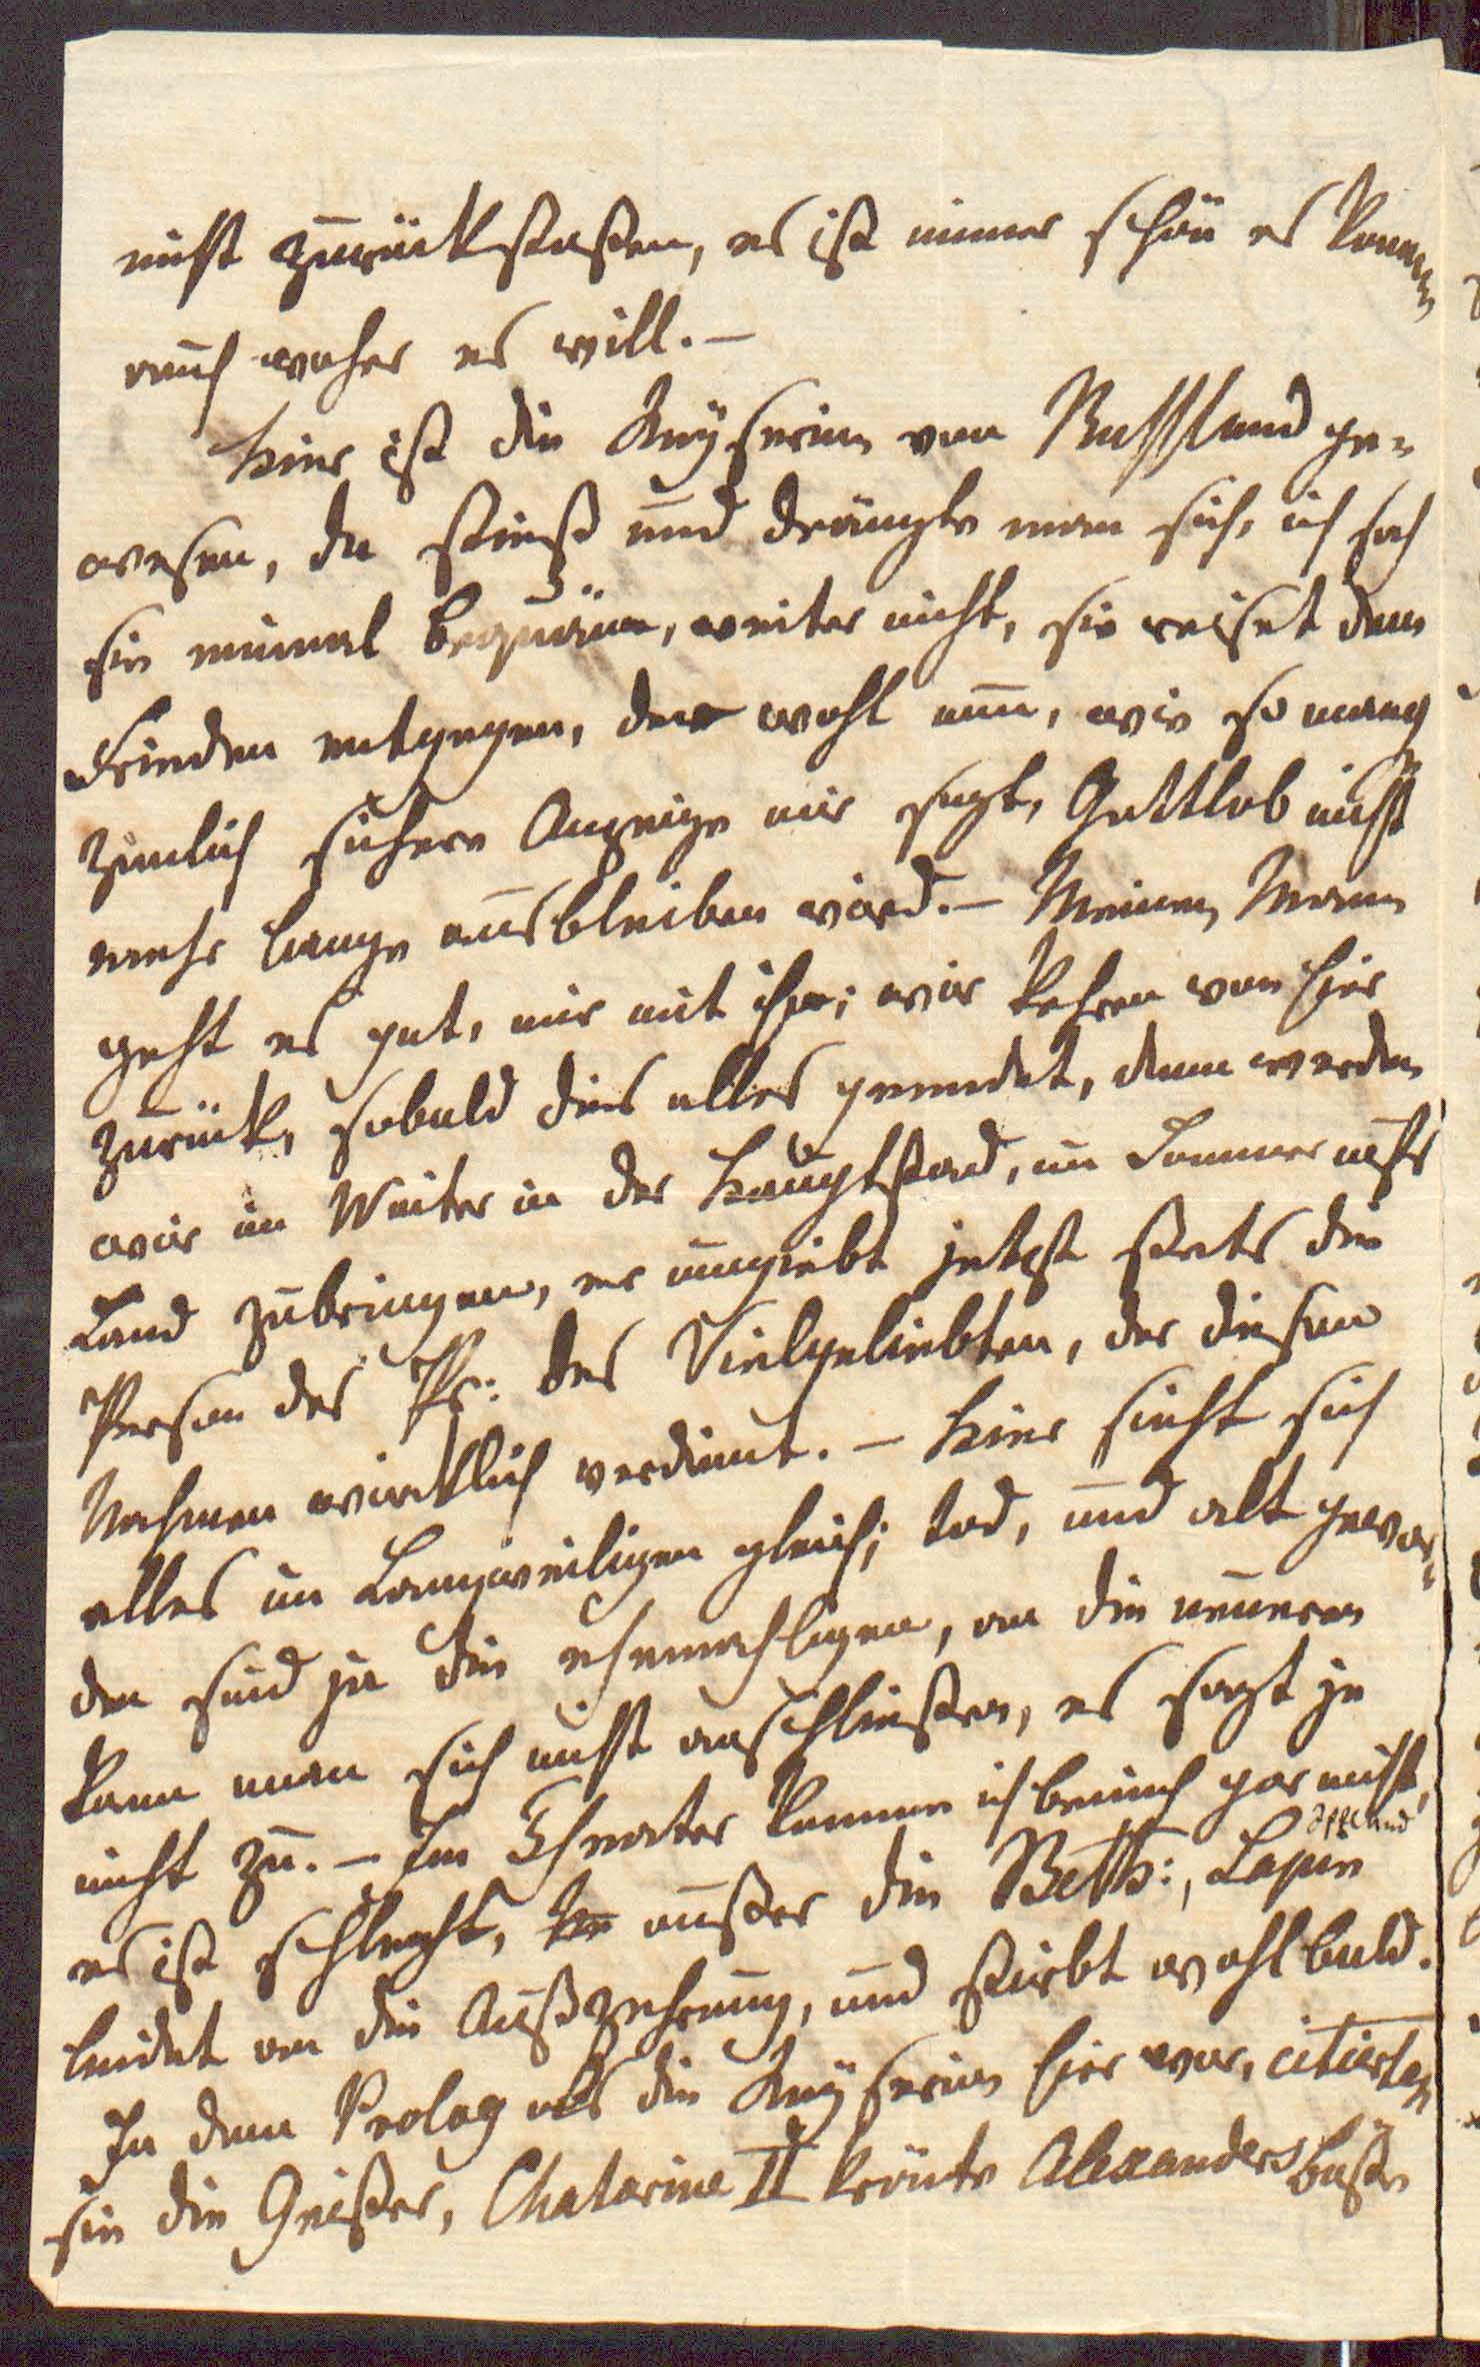 nicht zurückstoßen, es ist immer schön es komme
auch woher es will. –
Hier ist die Kaÿserinn von Russland ge-
wesen, da stieß und drängte man sich, ich sah
sie einmal bequäm, weiter nicht, sie reiset dem
Frieden entgegen, der wohl nun, wie so manch
zimlich sichere Anzeige mir sagt, Gottlob nicht
mehr lange ausbleiben wird. – Meinem Mann
geht es gut, mir mit ihm; wir kehren von hier
zurück, sobald dies alles geendet, dann werden
wir im Winter in der Hauptstad, im Sommer aufs
Land zubringen, er umgiebt jetzt stets die
Person des Pr: des Vielgeliebten, der diesen
Nahmen wircklich verdient. – Hier sieht sich
alles im Langweiligen gleich; tod, und alt gewor-
den sind ja die ehemahligen, an die neueren
kann man sich nicht anschließen, es sagt ja
nicht zu. – Im Theater komme ich beinah gar nicht,
es ist schlecht, außer die Beth:, Iffland
leidet an die Auszehrung, und stirbt wohl bald.
In dem Prolog als die Kaÿserinn hier war, citierten
sie die Geister, Chatarine II krönte Alexanders Büste